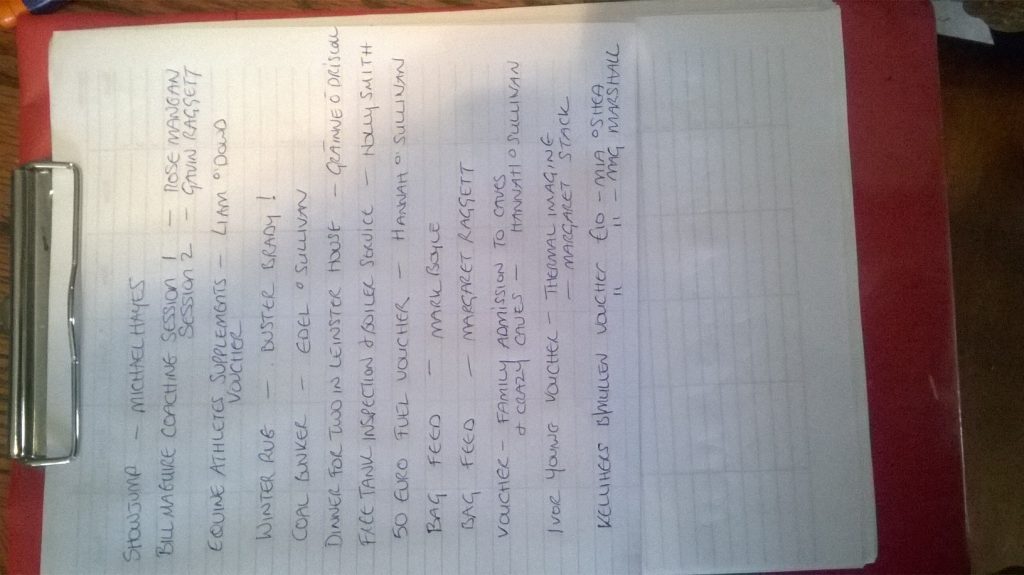 SHOWJUMP – MICHAEL HAYES
BILL MAGUIRE COACHING SESSION 1 – ROSE MANGAN
SESSION 2 – GAVIN RAGGETT
EQUINE ATHLETES SUPPLEMENTS – LIAM O'DOWD
VOUCHER
WINTER RUG – BUSTER BRADY!
COAL BUNKER – EDEL O'SULLIVAN
DINNER FOR TWO IN LEINSTER HOUSE – GRÁINNE O'DRISCOL
FREE TANK INSPECTION & BOILER SERVICE – NOLLY SMITH
50 EURO FUEL VOUCHER – HANNAH O'SULLIVAN
BAG FEED – MARK BOYLE
BAG FEED – MARGARET RAGGETT
VOUCHER – FAMILY ADMISSION TO CAVES
& CRAZY CAVES – HANNAH O'SULLIVAN
IVOR YOUNG VOUCHER – THERMAL IMAGING
– MARGARET STACK
KELLIHERS VOUCHER €10 – MIA O'SHEA
" " – MAG MARSHALL